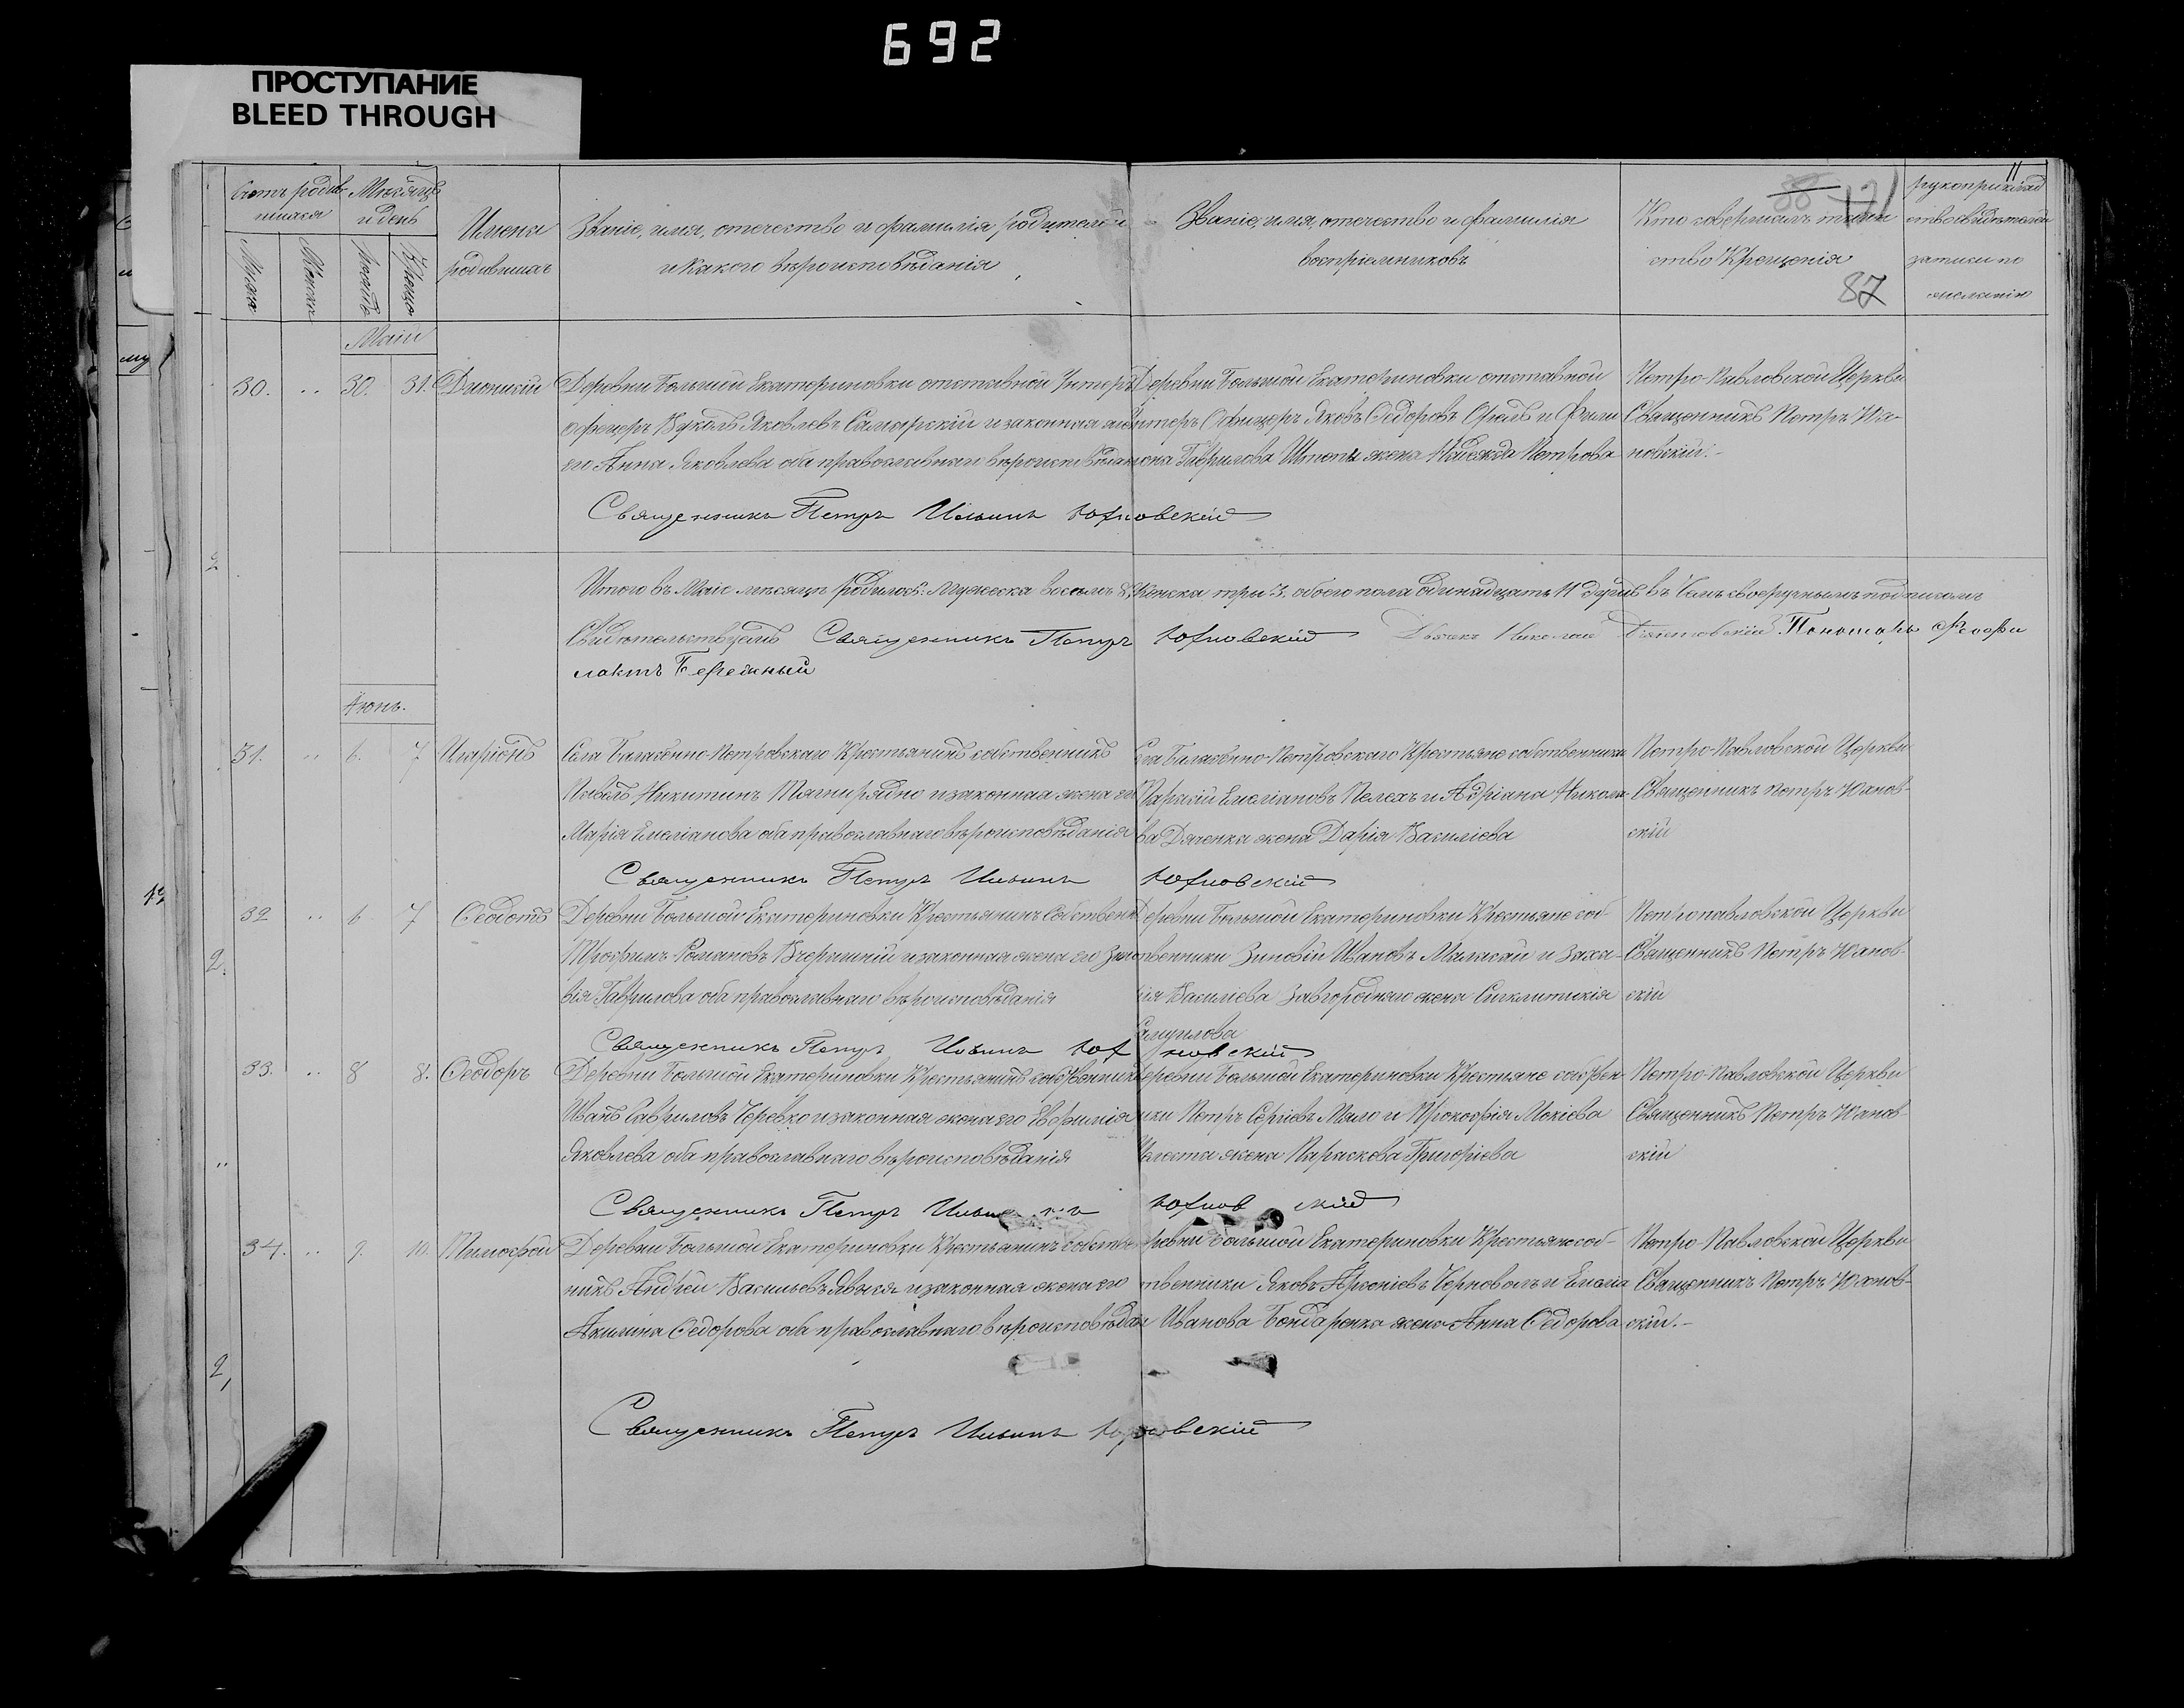 692
ПРОСТУПАНИЕ
BLEED THROUGH
11
171
87
Счетъ родив
шихся
Мужеска
Женска
Мѣсяцъ
и день
Крещенія
Имена
родившихъ
Званіе, имя, отечество и фамилія родителей
и какого вѣроисповѣданія
Званіе, имя, отечество и фамилія
воспріемниковъ
Кто совершилъ таин
ство Крещенія
рукоприклад
ство свидѣтелей
записи по
желанію
Маій
30. 30. 31. Діонисій
Деревни Большой Екатериновки отставной Унтеръ
офицеръ Яковлевъ Самарскій и законная жена
его Анна Яковлева оба православнаго вѣроисповѣдан
Деревни Большой Екатериновки отставной
Унтеръ Офицеръ Яковъ Ѳедоровъ Орелъ и Фили
мона Гаврилова Штепы жена Надежда Петрова
Петро-Павловской Церкви
Священникъ Петръ Юхновскій.-
Священникъ Петръ Ильинъ Юхновскій
Итого въ Маіе мѣсяцѣ родилось: мужеска восемь 8, Женска три 3, обоего пола одинадцать 11 душъ въ чемъ своеручнымъ подписомъ
Свидѣтельствуемъ Священникъ Петръ Юхновскій Дьячекъ Николай Пономарь Феофи
лактъ Бережный
Іюнь.
31. 6. 7 Иларіонъ
Села Балабино-Петровскаго Крестьянинъ собственникъ
Павелъ Никитинъ Тягнирядно и законная жена его
Марія Емеліанова оба православнаго вѣроисповѣданія
Села Балабино-Петровскаго Крестьяне собственники
Емеліановъ Пелехъ и Адріана Никола-
ва Дяченка жена Дарія Василіева
Петро-Павловской Церкви
Священникъ Петръ Юхнов-
скій
Священникъ Петръ Ильинъ Юхновскій
32 6. 7 Ѳеодотъ
Деревни Большой Екатериновки Крестьянинъ Собственн
Трофимъ Романовъ Вчерашній и законная жена его Зино
вія Гаврилова оба православнаго вѣроисповѣданія
Деревни Большой Екатериновки Крестьяне соб-
ственники Зиновій Ивановъ Маласай и Заха-
рія Василіева Завгороднаго жена Синклитикія
Самуилова
Петропавловской Церкви
Священникъ Петръ Юхнов-
скій
Священникъ Петръ Ильинъ Юхновскій
33. 8 8. Ѳеодоръ
Деревни Большой Екатериновки Крестьянинъ собственникъ
Иванъ Гавриловъ Черевко и законная жена его Евфимія
Яковлева оба православнаго вѣроисповѣданія
Деревни Большой Екатериновки Крестьяне собствен-
ники Петръ Сергіевъ Мало и Прокофія Мокіева
жена Параскова Григоріева
Петро-Павловской Церкви
Священникъ Петръ Юхнов-
скій
Священникъ Петръ Ильинъ Юхновскій
34. 9. 10. Тимоѳей
Деревни Большой Екатериновки Крестьянинъ собствен
никъ Андрей Васильевъ и законная жена его
Акилина Ѳедорова оба православнаго вѣроисповѣдан
Деревни Большой Екатериновки Крестьяне соб-
ственники Яковъ Черноволъ и Емелія
Иванова Бондаренка жена Анна Ѳедорова
Петро-Павловской Церкви
Священникъ Петръ Юхнов-
скій.-
Священникъ Петръ Ильинъ Юхновскій